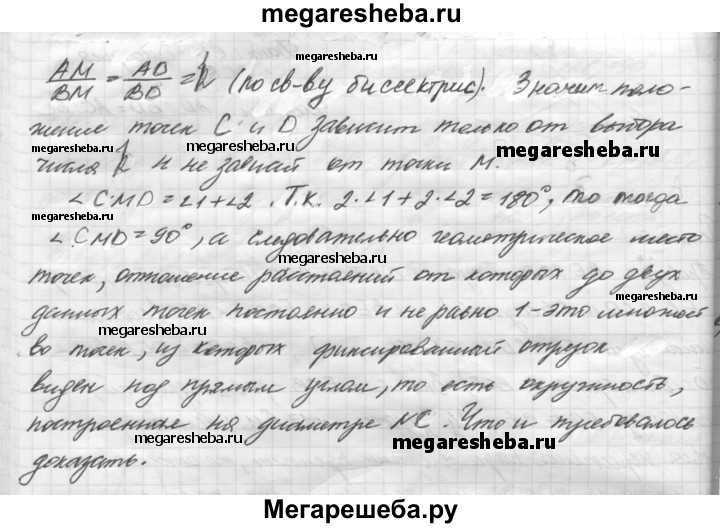 megaresheba.ru
AM/BM = AD/BD = k (по св-ву биссектрис). Значит поло-
megaresheba.ru
megaresheba.ru
жение точек C и D зависит только от выбора
числа k и не завсит от точки M.
megaresheba.ru
megaresheba.ru
∠CMD = ∠1+∠2. Т.к. 2·∠1 + 2·∠2 = 180°, то тогда
megaresheba.ru
∠CMD = 90°, а следовательно геометрическое место
megaresheba.ru
точек, отношение расстояний от которых до двух
megaresheba.ru
данных точек постоянно и не равно 1 - это множест
megaresheba.ru
во точек, из которых фиксированный отрезок
megaresheba.ru
виден под прямым углом, то есть окружность,
построенная на диаметре NC. Что и требовалось
megaresheba.ru
megaresheba.ru
доказать.
Мегарешеба.ру